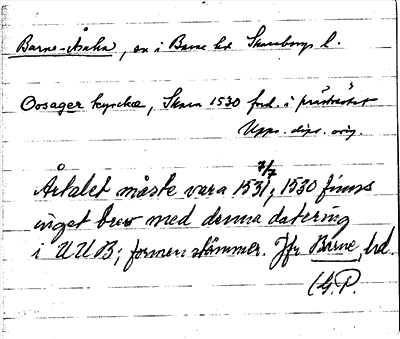 Barne-Åsaka, sn i Barne hd Skaraborgs l.
Oosager kyrckæ, Skara 1530 förd. i präströtet
Upps. dipl. orig.
7/7
Årtalet måste vara 1531; 1530 finns
inget brev med denna datering
i UUB; formen stämmer. Jfr Barne hd.
(G.P.